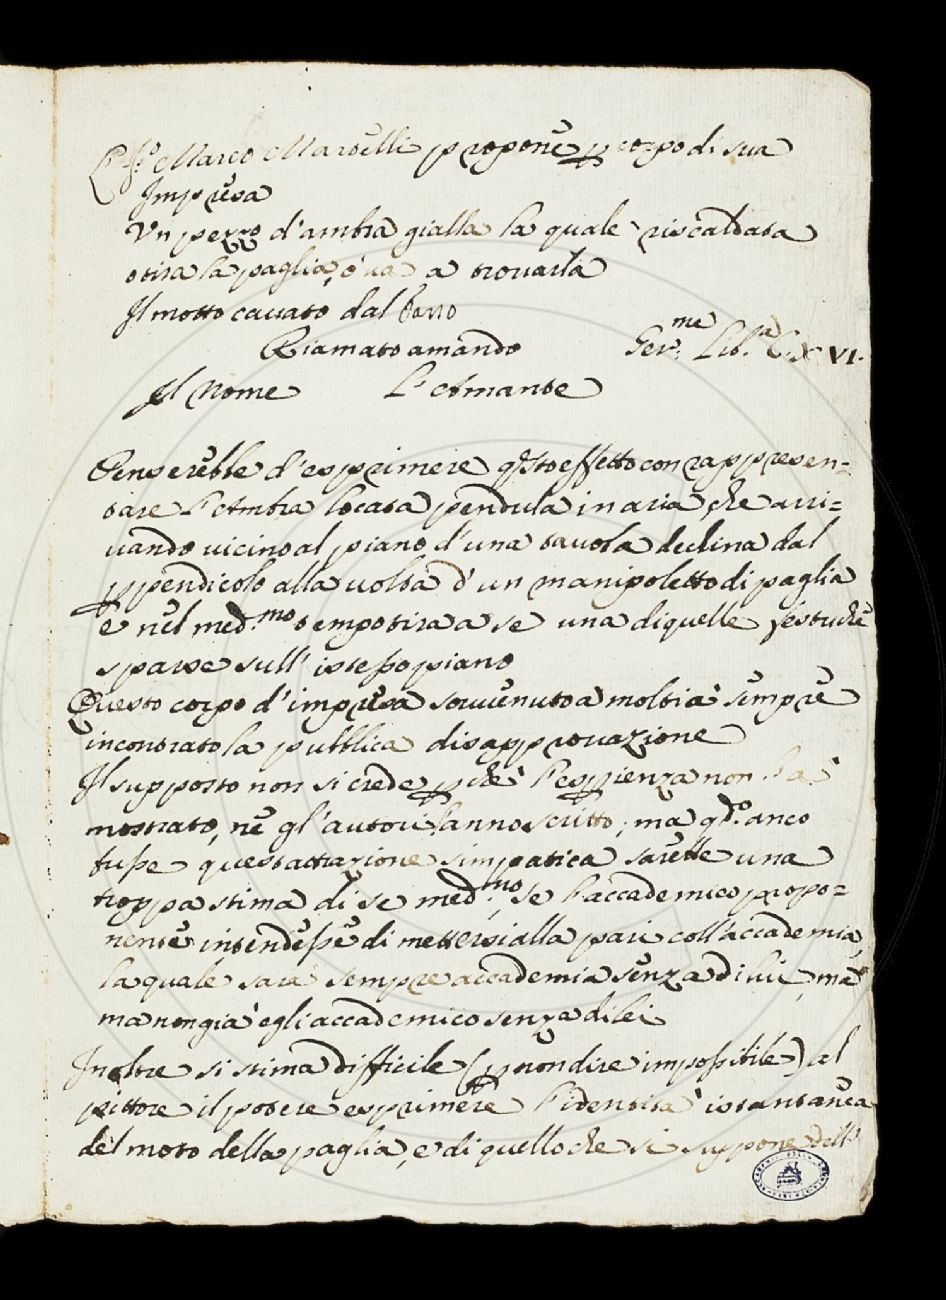 Il Sr. Marco Martelli propone p corpo di sua
Impresa
Un pezzo d'ambra gialla la quale riscaldata
o tira la paglia, o va a trovarla
Il motto cavato dal Tasso
Riamato amando Ger.me Lib.a C. XVI.
Il Nome L'Amante
Penserebbe d'esprimere qsto effetto con rappresen=
tare l'Ambra locata pendula in aria, che arri=
vando vicino al piano d'una tavola declina dal
ppendicolo alla volta d'un manipoletto di paglia
e nel med.mo tempo tira a se una di quelle festuche
sparse sull'istesso piano
Questo corpo d'impresa sovvenuto a molti à sempre
incontrato la pubblica disapprovazione
Il supposto non si crede pche l'esppienza non l'à
mostrato, nè gl'autori l'anno scritto; ma qdo. anco
fusse quest'attrazione simpatica sarebbe una
troppa stima di se med.mo, se l'accademico propo=
nente intendesse di mettersi alla pari coll'accademia,
la quale sarà sempre accademia senza di lui, ma
ma non già egli accademico senza di lei
Inoltre si stima difficile (p non dire impossibile) al
pittore il potere esprimere l'identità istantanea
del moto della paglia, e di quello che si suppone dell'